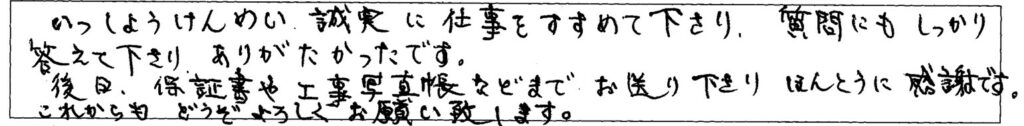 いっしょうけんめい 誠実に仕事をすすめて下さり、質問にもしっかり
答えて下さり ありがたかったです。
後日、保証書や工事写真帳などまで お送り下さり ほんとうに感謝です。
これからも どうぞよろしくお願い致します。